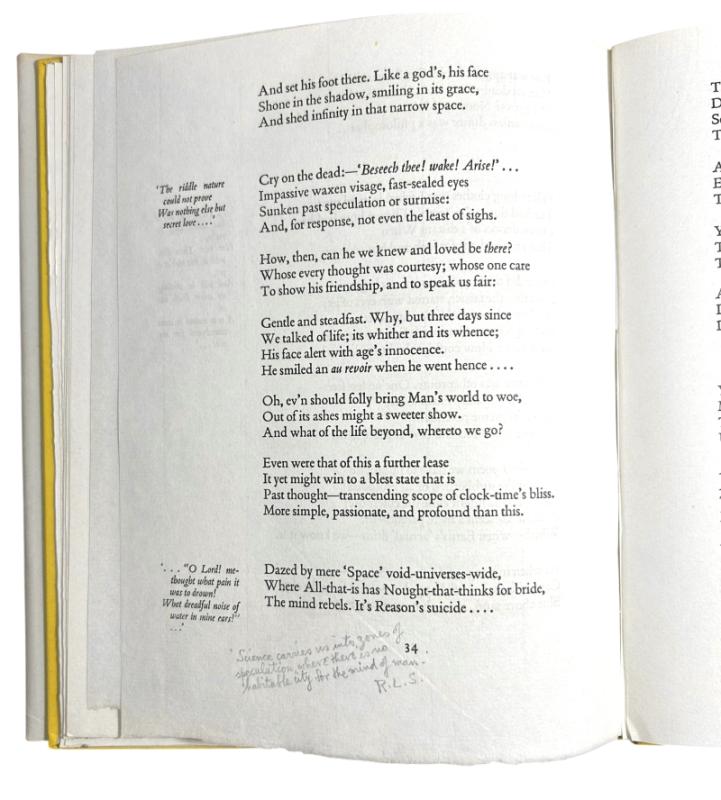 And set his foot there. Like a god's, his face
Shone in the shadow, smiling in its grace,
And shed infinity in that narrow space.
'The riddle nature
could not prove
Was nothing else but
secret love . . . .'
Cry on the dead:—'Beseech thee! wake! Arise!' . . .
Impassive waxen visage, fast-sealed eyes
Sunken past speculation or surmise:
And, for response, not even the least of sighs.
How, then, can he we knew and loved be there?
Whose every thought was courtesy; whose one care
To show his friendship, and to speak us fair:
Gentle and steadfast. Why, but three days since
We talked of life; its whither and its whence;
His face alert with age's innocence.
He smiled an au revoir when he went hence . . . .
Oh, ev'n should folly bring Man's world to woe,
Out of its ashes might a sweeter show.
And what of the life beyond, whereto we go?
Even were that of this a further lease
It yet might win to a blest state that is
Past thought—transcending scope of clock-time's bliss.
More simple, passionate, and profound than this.
'. . . "O Lord! me-
thought what pain it
was to drown!
What dreadful noise of
water in mine ears!"
. . .'
Dazed by mere 'Space' void-universes-wide,
Where All-that-is has Nought-that-thinks for bride,
The mind rebels. It's Reason's suicide . . . .
34
'Science carries us into zones of
speculation, where there is no
habitable city for the mind of man.
R.L.S.
T
D
S
T
A
E
T
Y
T
T
A